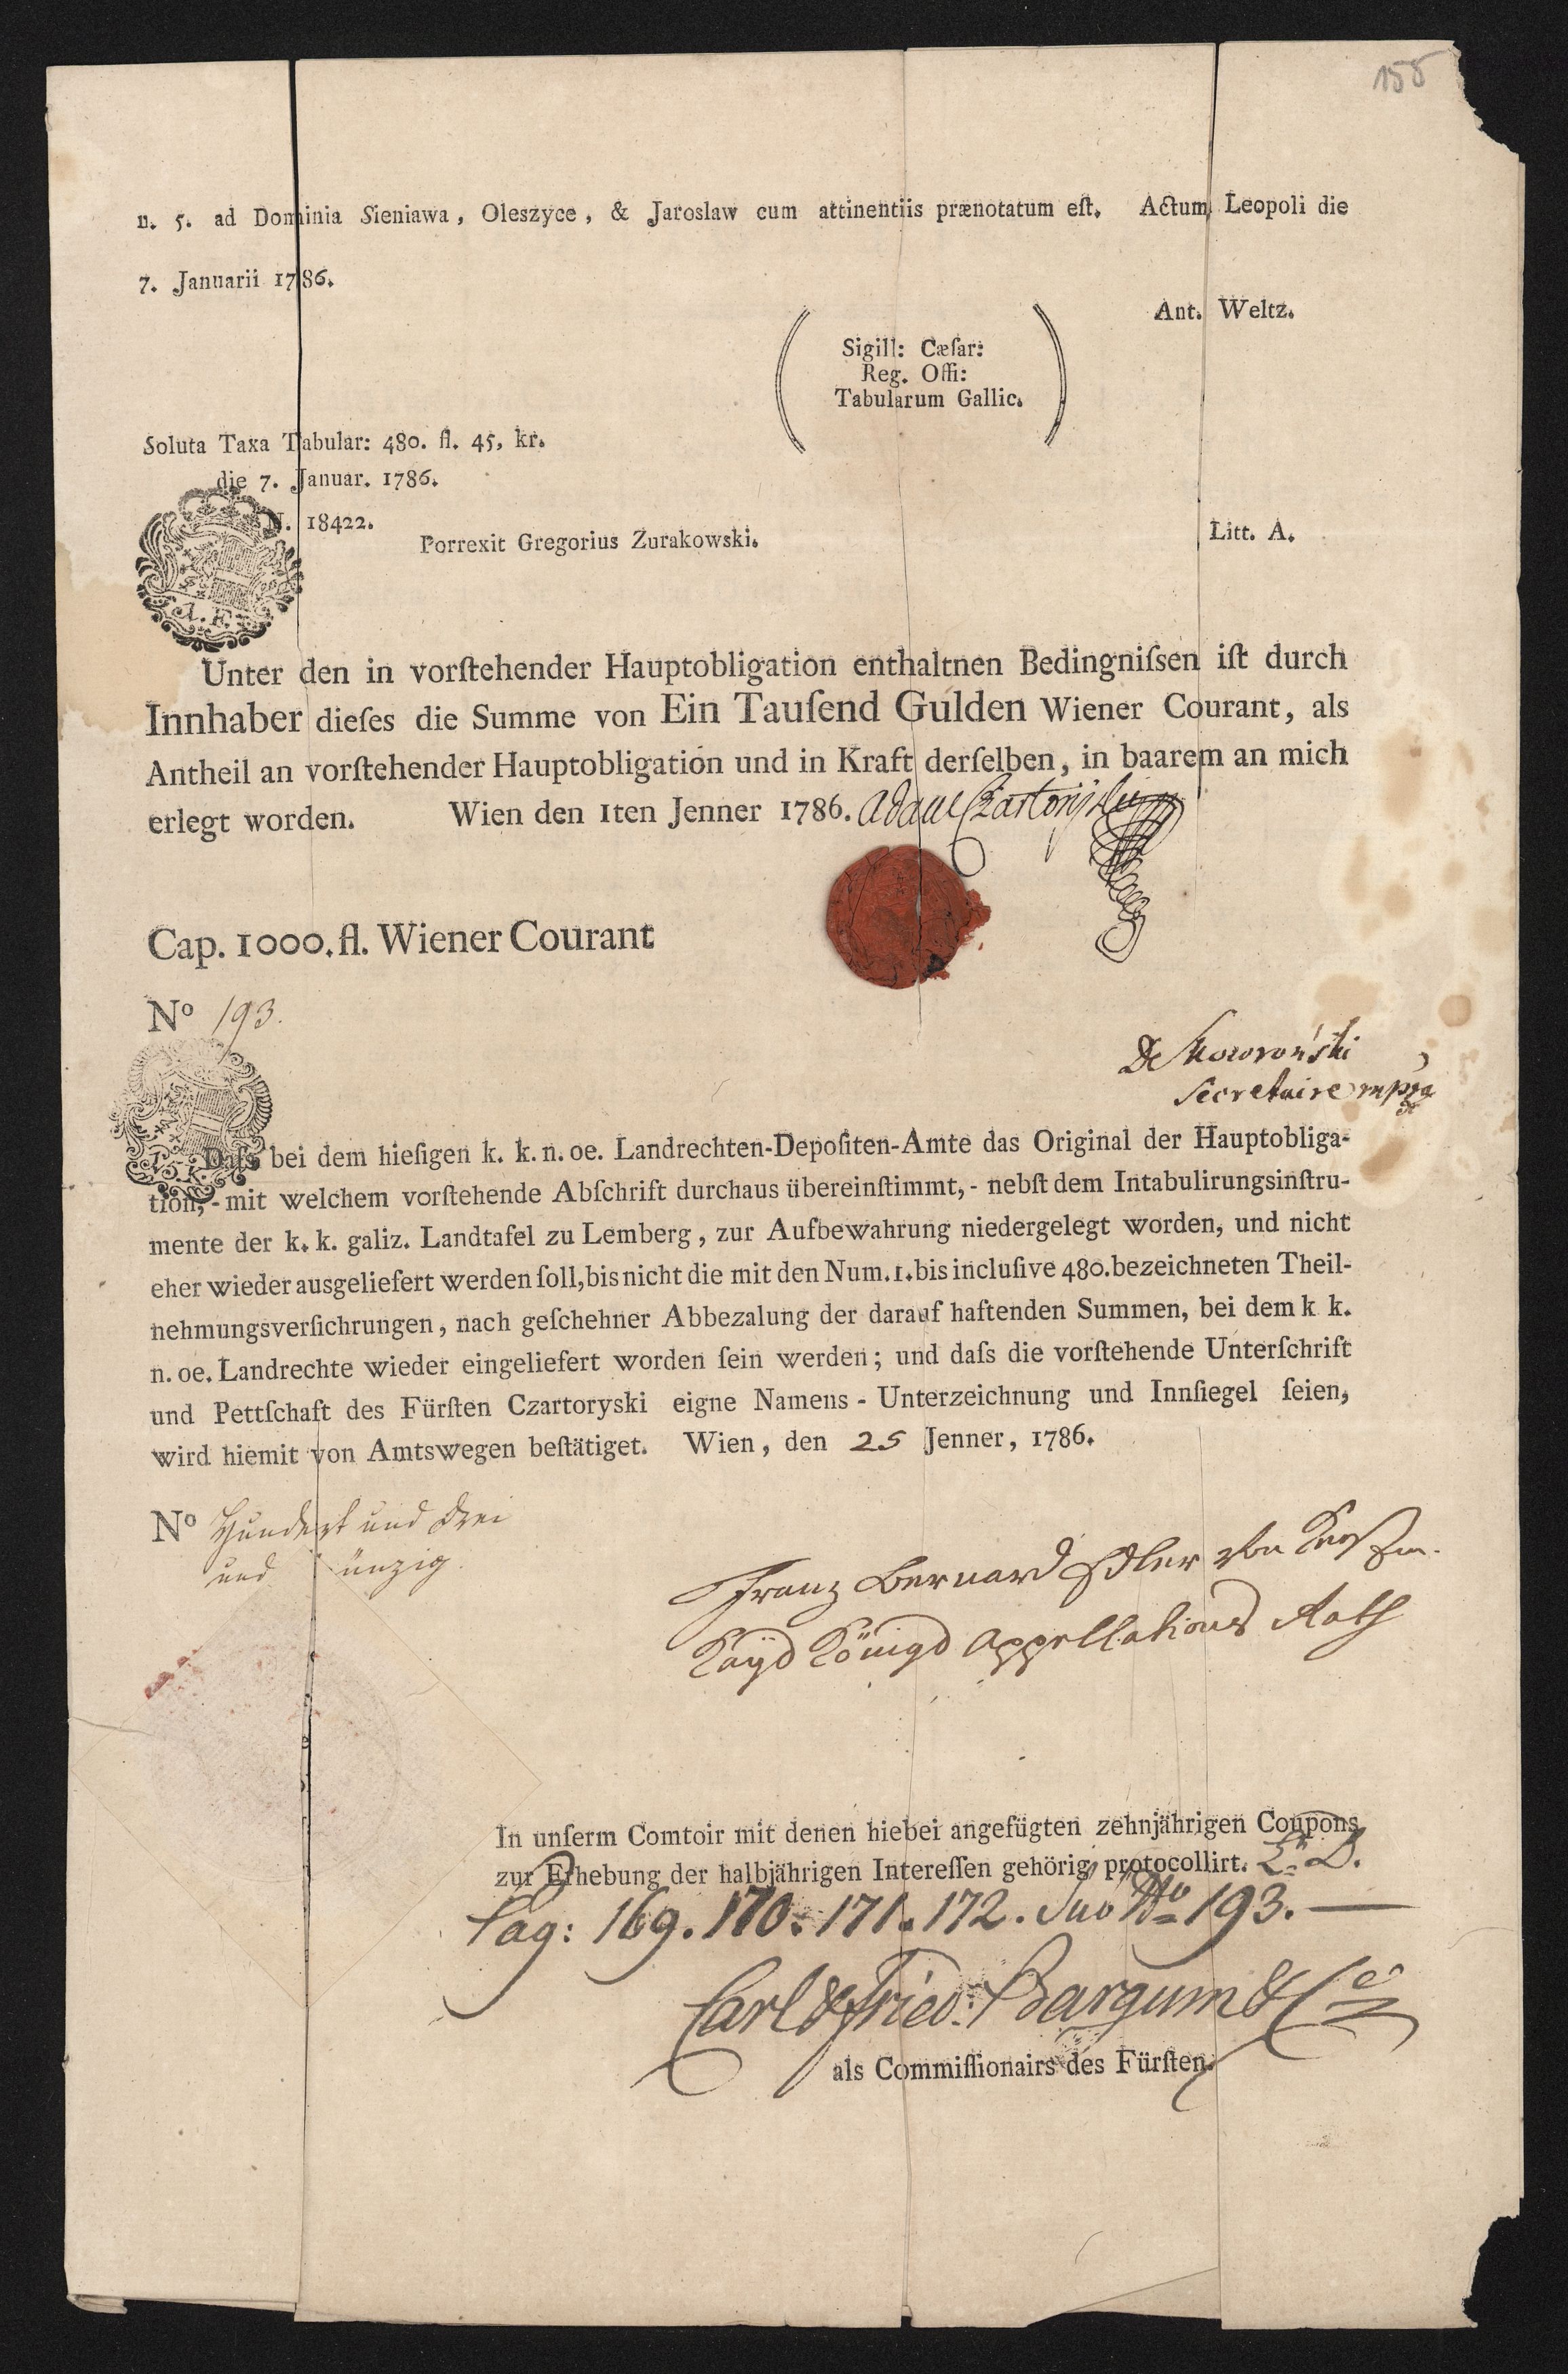 155
n. 5. ad Dominia Sieniawa, Oleszyce, & Jaroslaw cum attinentiis prænotatum eſt. Actum Leopoli die
7. Januarii 1786.
Ant. Weltz.
Sigill: Cæſar:
Reg. Offi:
Tabularum Gallic.
Soluta Taxa Tabular: 480. fl. 45, kr.
die 7. Januar. 1786.
N. 18422.
Porrexit Gregorius Zurakowski.
Litt. A.
Unter den in vorſtehender Hauptobligation enthaltnen Bedingniſsen iſt durch
Innhaber dieſes die Summe von Ein Tauſend Gulden Wiener Courant, als
Antheil an vorſtehender Hauptobligation und in Kraft derſelben, in baarem an mich
erlegt worden. Wien den 1ten Jenner 1786. Adam Czartoryski
Cap. 1000. fl. Wiener Courant
Nº 193.
De Skowroński
Secretaire mpra
Daſs bei dem hieſigen k. k. n. oe. Landrechten-Depoſiten-Amte das Original der Hauptobliga-
tion, - mit welchem vorſtehende Abſchrift durchaus übereinſtimmt, - nebſt dem Intabulirungsinſtru-
mente der k. k. galiz. Landtafel zu Lemberg, zur Aufbewahrung niedergelegt worden, und nicht
eher wieder ausgeliefert werden ſoll, bis nicht die mit den Num. 1. bis incluſive 480. bezeichneten Theil-
nehmungsverſichrungen, nach geſchehner Abbezalung der darauf haftenden Summen, bei dem k k.
n. oe. Landrechte wieder eingeliefert worden ſein werden; und daſs die vorſtehende Unterſchrift
und Pettſchaft des Fürſten Czartoryski eigne Namens - Unterzeichnung und Innſiegel ſeien,
wird hiemit von Amtswegen beſtätiget. Wien, den 25 Jenner, 1786.
Nº Hundert und Drei
und ünzig.
Franz Bernard Edler von
Kays Königs Appellations Rath
In unſerm Comtoir mit denen hiebei angefügten zehnjährigen Coupons
zur Erhebung der halbjährigen Intereſſen gehörig protocollirt. L. D.
Pag: 169. 170. 171. 172. Sub No 193.
Carl & Fried. Bargum & Co
als Commiſſionairs des Fürſten.